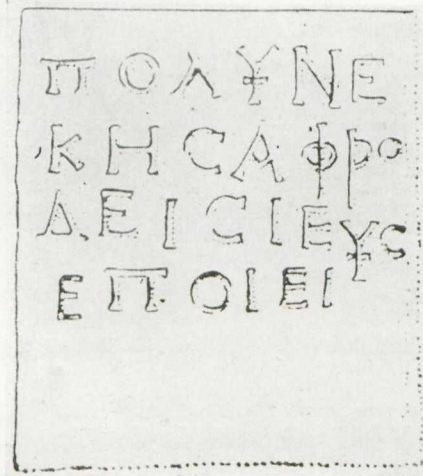 ΠΟΛΥΝΕ
ΚΗϹΑΦΡΟ
ΔΕΙϹΙΕΥϹ
ΕΠΟΙΕΙ